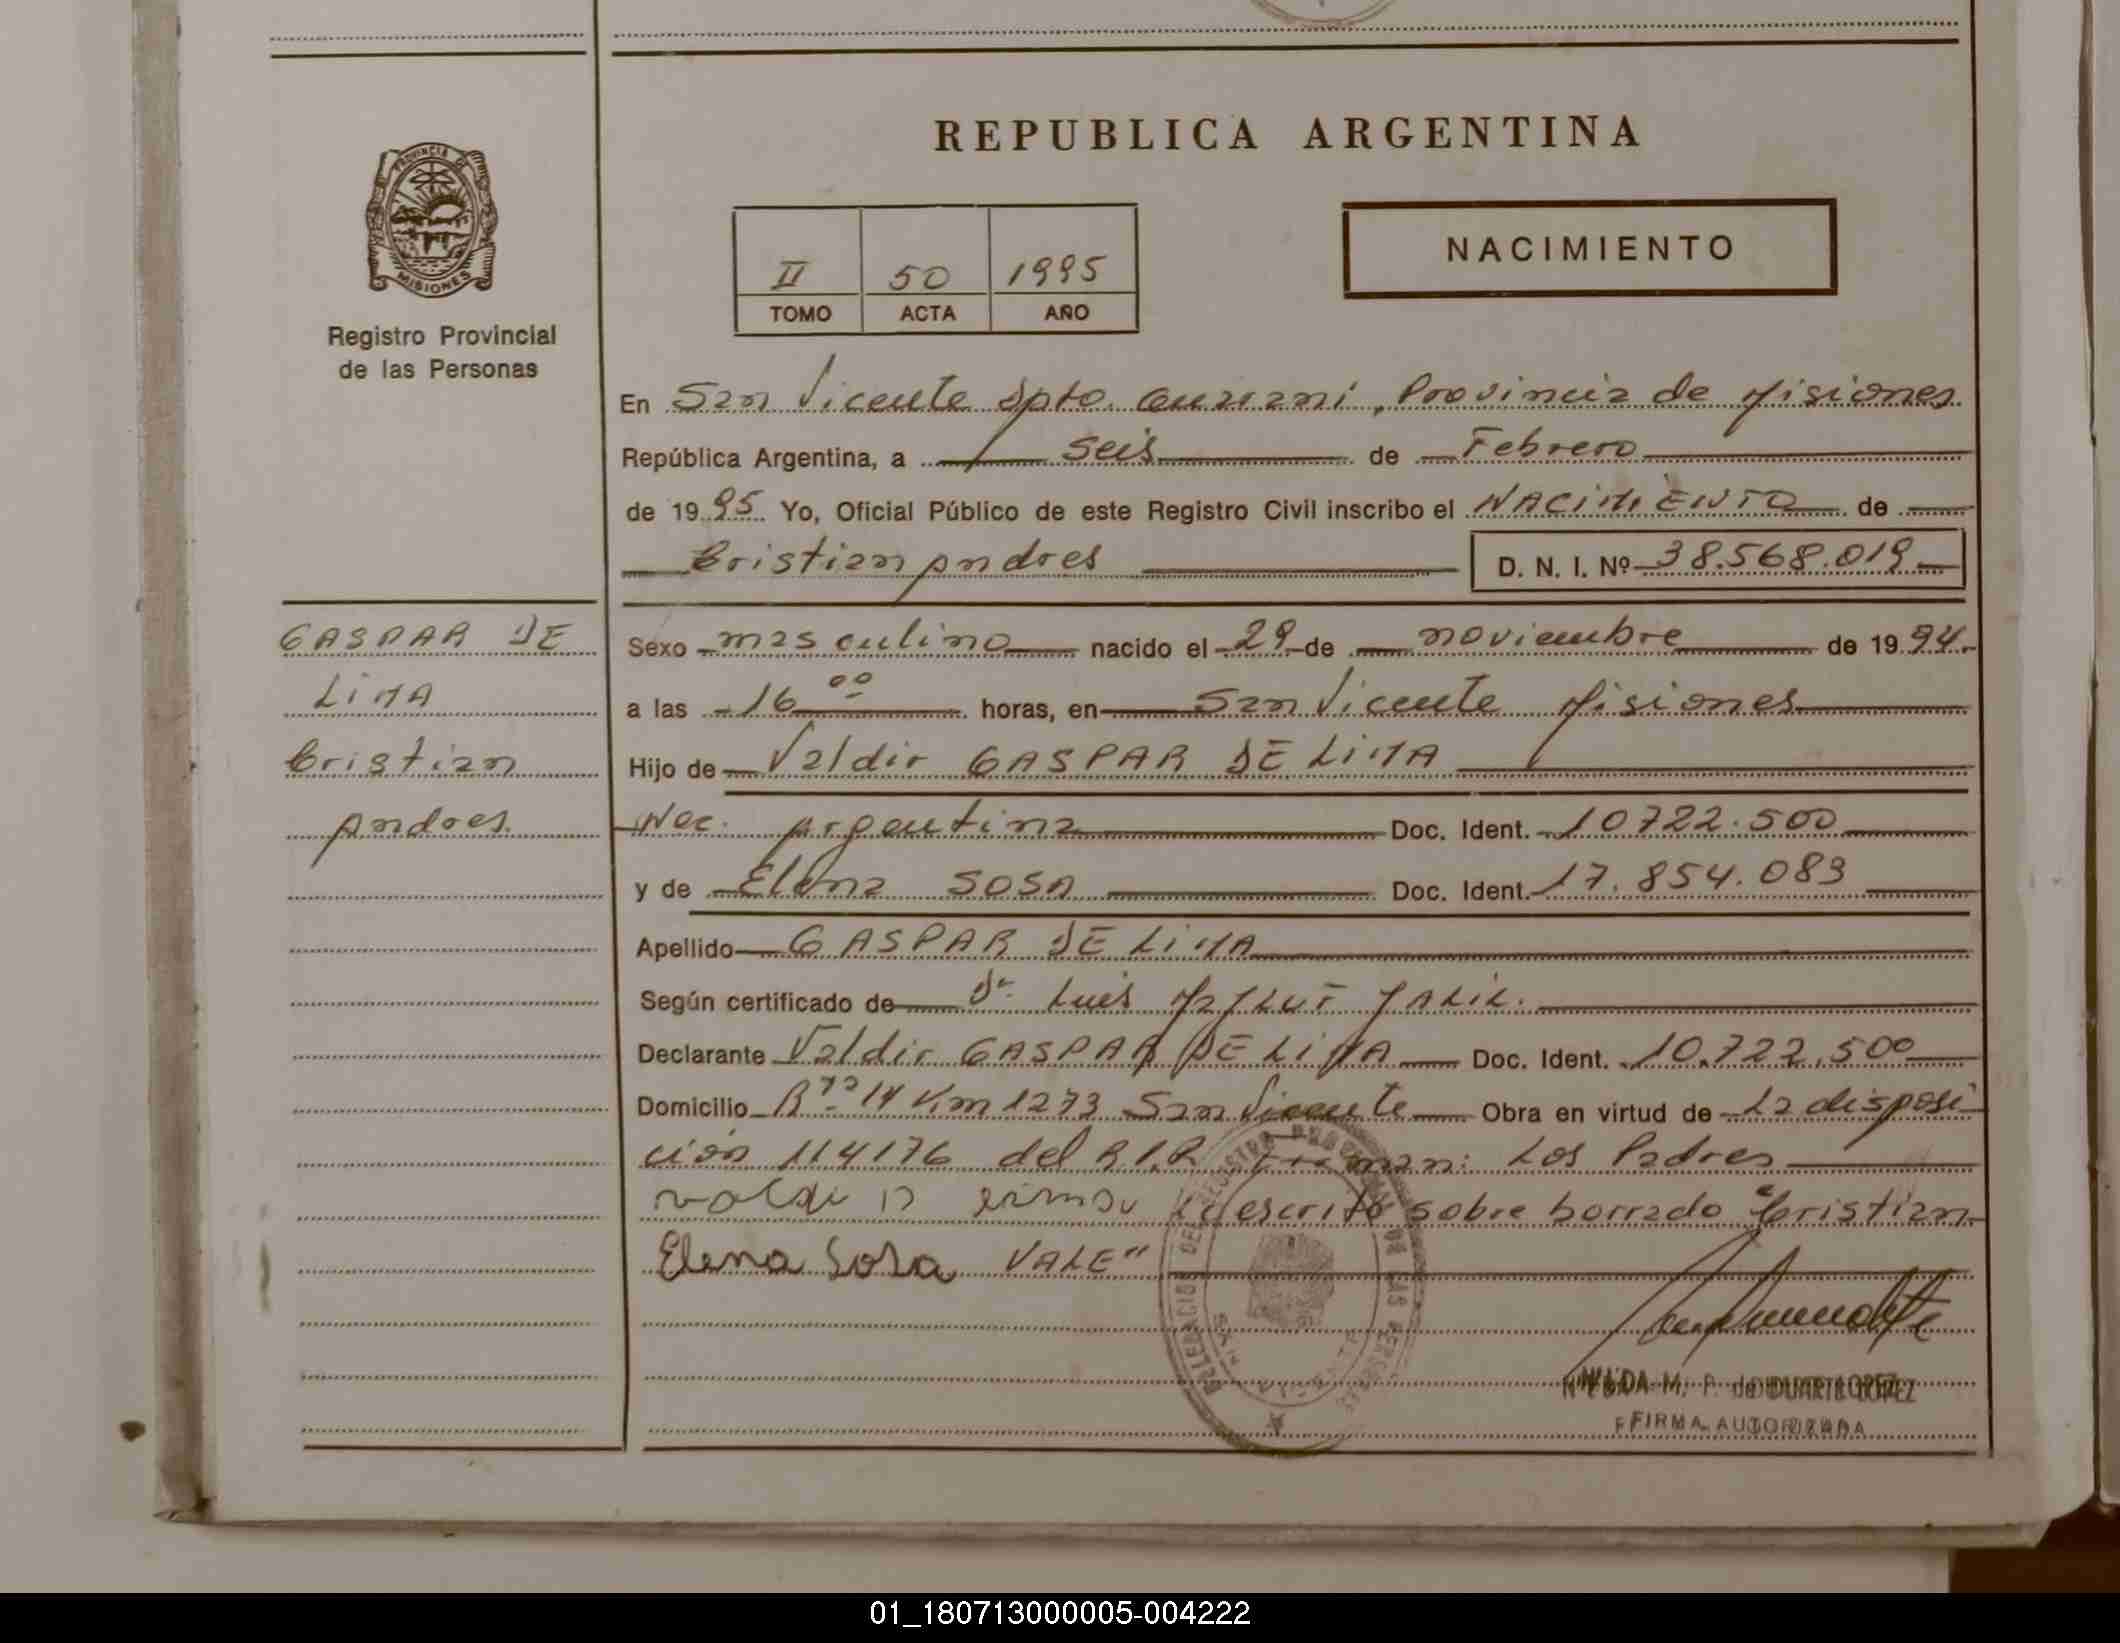 REPUBLICA ARGENTINA
PROVINCIA DE
MISIONES
Registro Provincial
de las Personas
II 50 1995
TOMO ACTA AÑO
NACIMIENTO
En San Vicente Dpto. Guaraní, Provincia de Misiones
República Argentina, a seis de Febrero
de 1995 Yo, Oficial Público de este Registro Civil inscribo el NACIMIENTO de
Cristian Andres D. N. I. Nº 38.568.019
GASPAR DE
LIMA
Cristian
Andres
Sexo masculino nacido el 29 de noviembre de 1994
a las 16 00 horas, en San Vicente Misiones
Hijo de Valdir GASPAR DE LIMA
Nac. Argentina Doc. Ident. 10722.500
y de Elena SOSA Doc. Ident. 17.854.083
Apellido GASPAR DE LIMA
Según certificado de Dr. Luis
Declarante Valdir GASPAR DE LIMA Doc. Ident. 10.722.500
Domicilio Rta 14 Km 1273 San Vicente Obra en virtud de La disposi
ción 114176 del Firman: Los Padres
escrito sobre borrado "Cristian
Elena Sosa VALE"
DELEGACION DEL REGISTRO PROVINCIAL DE LAS PERSONAS
SAN VICENTE
M. P. de DUARTE LOPEZ
FIRMA AUTORIZADA
01_180713000005-004222